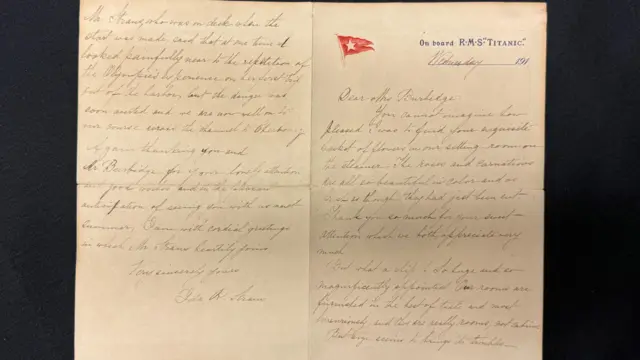 On board R·M·S·"TITANIC."
Wednesday 191
Dear Mrs Burbidge:
You cannot imagine how
pleased I was to find your exquisite
basket of flowers in our sitting room on
the steamer. The roses and carnations
are all so beautiful in color and as
fresh as though they had just been cut.
Thank you so much for your sweet
attention which we both appreciate very
much.
But what a ship! So huge and so
magnificently appointed. Our rooms are
furnished in the best of taste and most
luxuriously and they are really rooms, not cabins.
But size seems to bring its troubles—
Mr. Straus, who was on deck when the
start was made, said that at one time it
looked painfully near to the repetition of
the Olympic's experience on her first trip
out of the harbor, but the danger was
soon averted and we are now well on to
our course across the channel to Cherbourg
Again thanking you and
Mr Burbidge for your lovely attention
and good wishes and in the pleasant
anticipation of seeing you with us next
summer, I am with cordial greetings
in which Mr Straus heartily joins
Very sincerely yours
Ida R. Straus